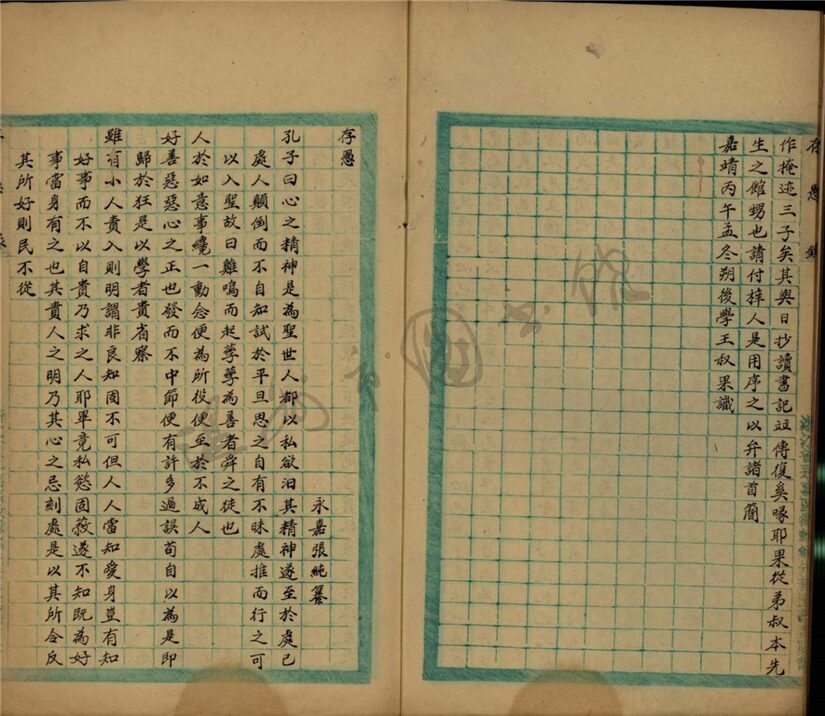 存愚錄
作掩迹三子矣其與日抄讀書記竝傳復奚啄耶果從弟叔本先
生之館甥也請付梓人是用序之以弁諸首簡
嘉靖丙午孟冬朔後學王叔果識
存愚
永嘉張純纂
孔子曰心之精神是為聖世人都以私欲汨其精神遂至於處已
處人顛倒而不自知試於平旦思之自有不昧處推而行之可
以入聖故曰雞鳴而起孳孳為善者舜之徒也
人於如意事纔一動念便為所役便至於不成人
好善惡惡心之正也發而不中節便有許多過誤苟自以為是即
歸於狂是以學者貴省察
雖有小人責入則明謂非良知固不可但人人當知愛身豈有知
好事而不以自責乃求之人耶畢竟私慾固蔽遂不知既為好
事當身有之也其責人之明乃其心之忌刻處是以其所令反
其所好則民不從